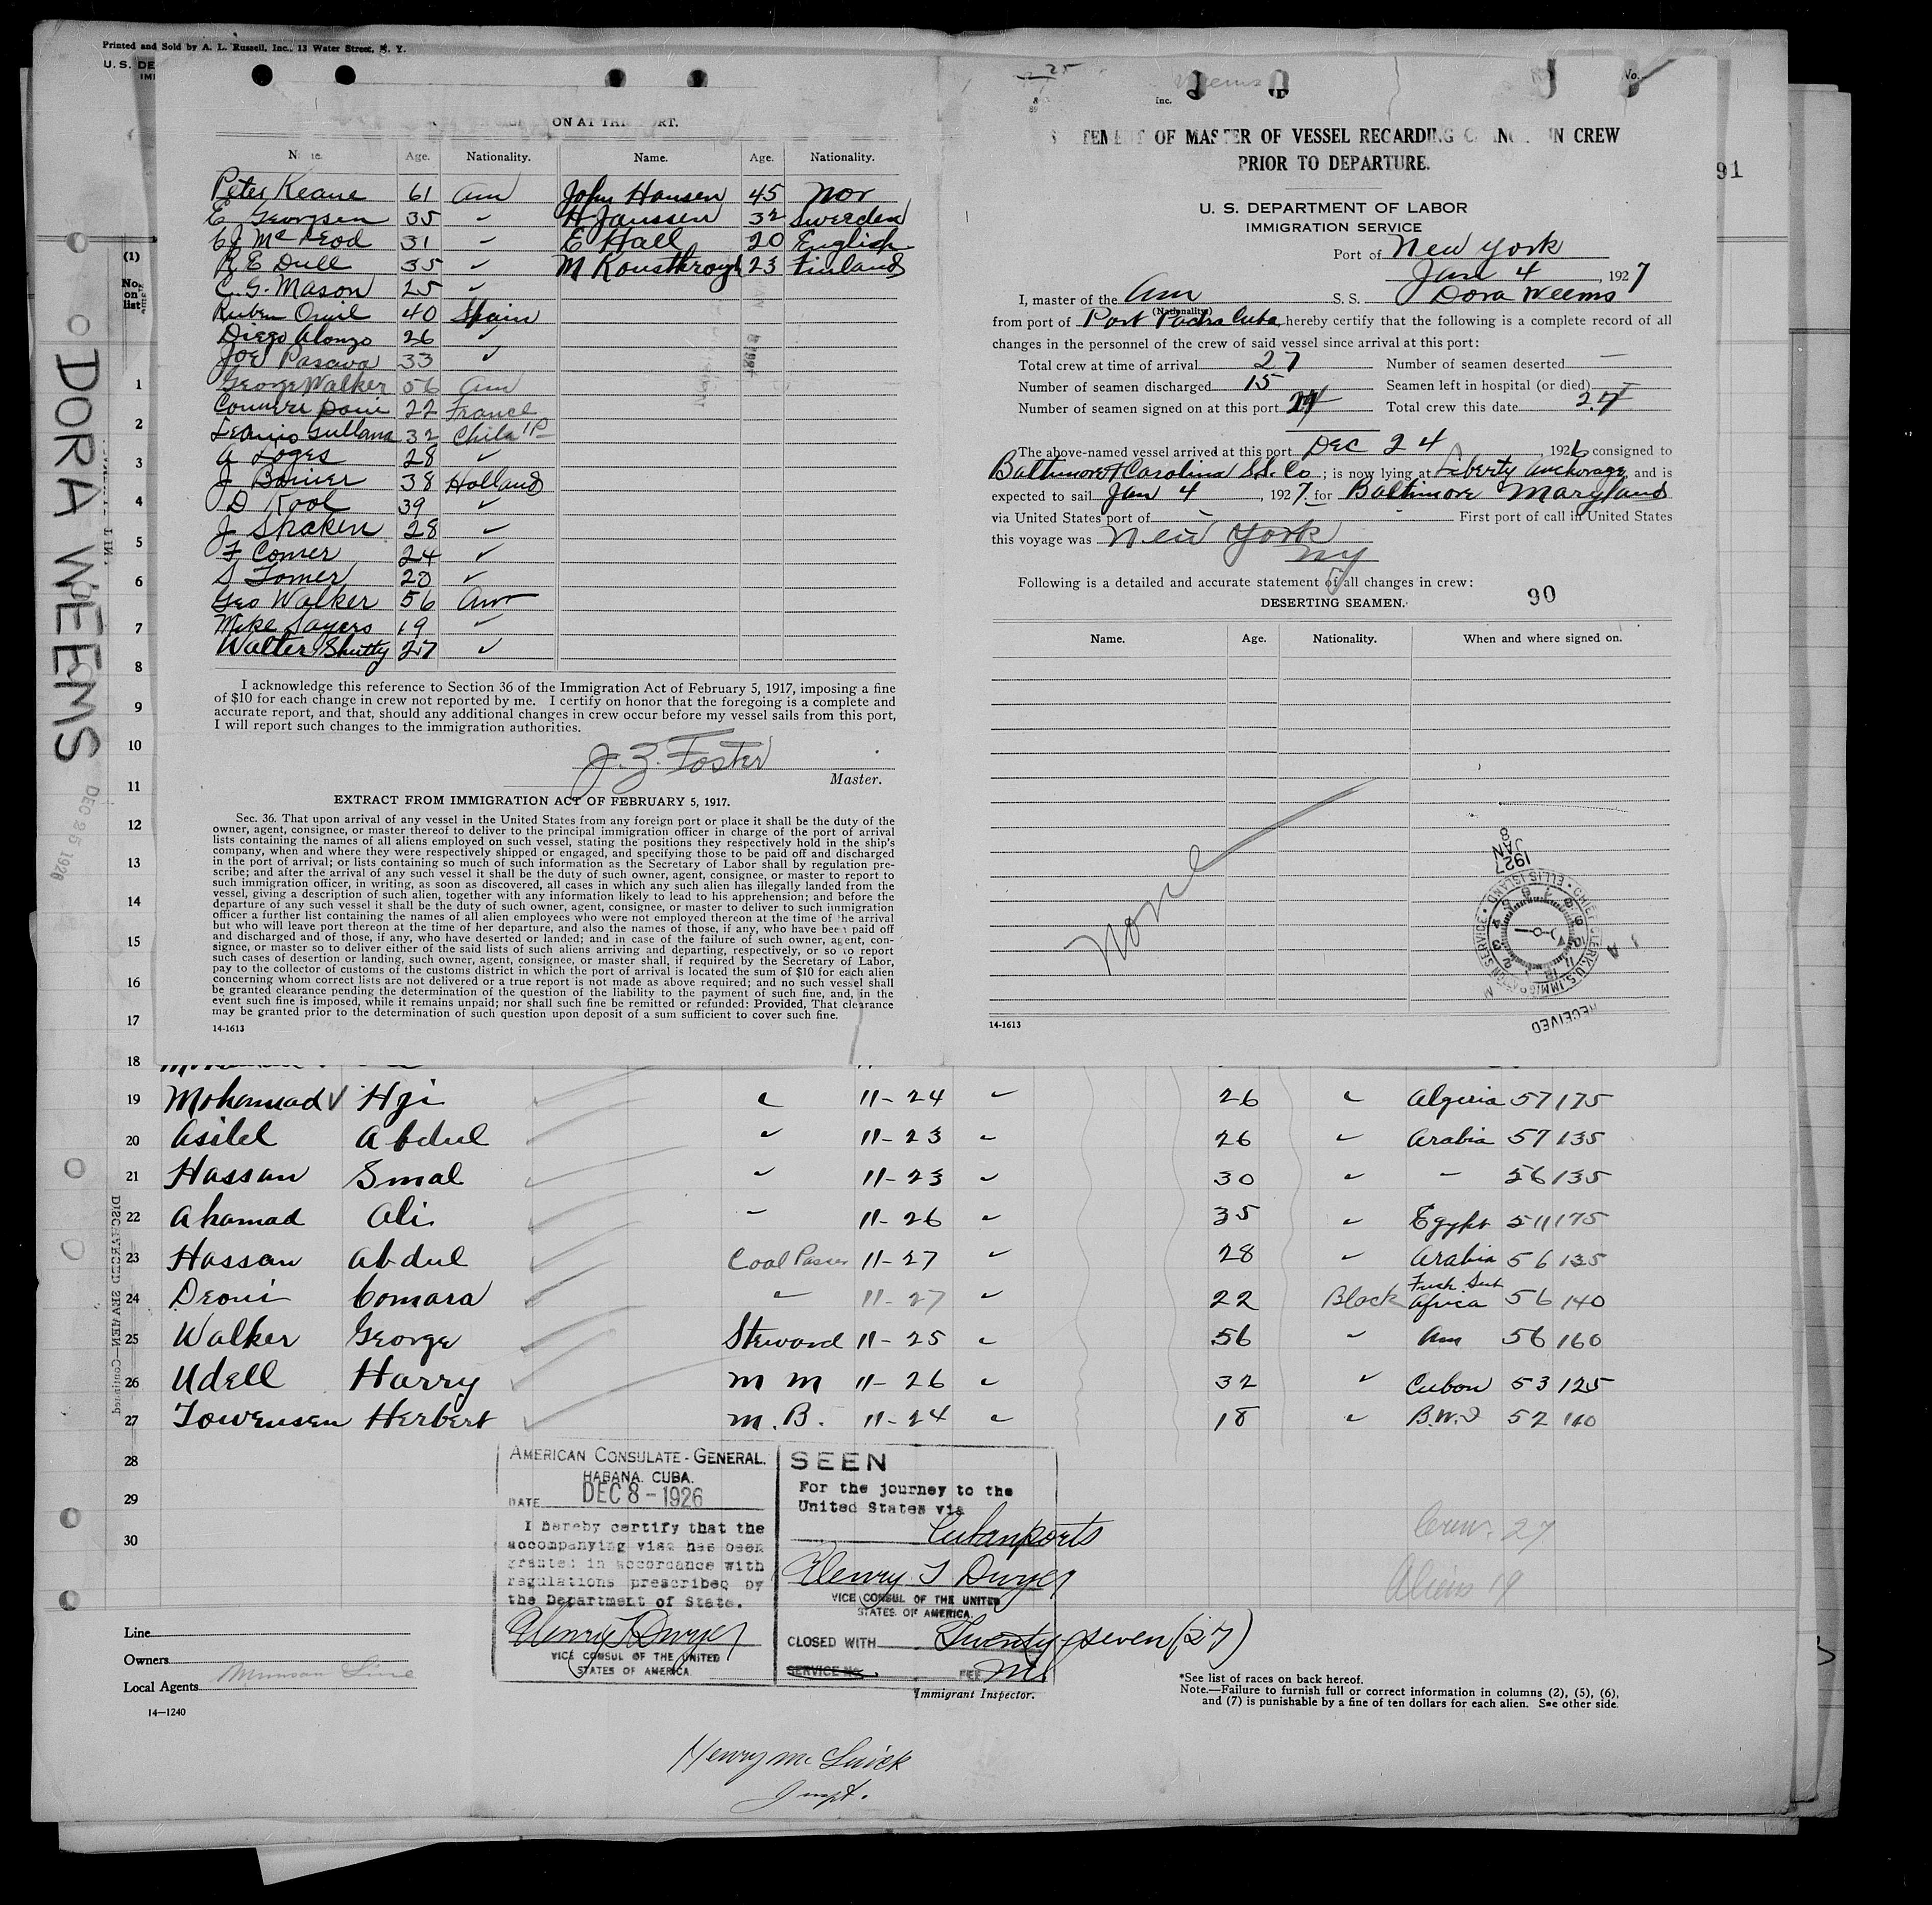 Printed and Sold by A. L. Russell, Inc., 13 Water Street, N. Y.
U. S. DE
IMI
DORA WEEMS
DEC 25 1926
(1)
No. on list
ON AT THIS PORT.
Name. Age. Nationality. Name. Age. Nationality.
Peter Keane 61 Am John Hansen 45 Nor
E Georgsen 35 " H Janssen 32 Sweeden
C J McLeod 31 " E Hall 20 English
R E Dull 35 " M 23 Finland
C. G. Mason 25 "
Ruben 40 Spain
Diego Alonzo 26 "
Joe Pasava 33 "
George Walker 56 Am
22 France
32 Chile
A Loges 28 "
J 38 Holland
D Kool 39 "
J Shaken 28 "
F Comer 24 "
S Tomer 28 "
Geo Walker 56 Am
Mike Sayers 19 "
Walter Shutty 27 "
I acknowledge this reference to Section 36 of the Immigration Act of February 5, 1917, imposing a fine
of $10 for each change in crew not reported by me. I certify on honor that the foregoing is a complete and
accurate report, and that, should any additional changes in crew occur before my vessel sails from this port,
I will report such changes to the immigration authorities.
J. Z. Foster
Master.
EXTRACT FROM IMMIGRATION ACT OF FEBRUARY 5, 1917.
Sec. 36. That upon arrival of any vessel in the United States from any foreign port or place it shall be the duty of the
owner, agent, consignee, or master thereof to deliver to the principal immigration officer in charge of the port of arrival
lists containing the names of all aliens employed on such vessel, stating the positions they respectively hold in the ship's
company, when and where they were respectively shipped or engaged, and specifying those to be paid off and discharged
in the port of arrival; or lists containing so much of such information as the Secretary of Labor shall by regulation pre-
scribe; and after the arrival of any such vessel it shall be the duty of such owner, agent, consignee, or master to report to
such immigration officer, in writing, as soon as discovered, all cases in which any such alien has illegally landed from the
vessel, giving a description of such alien, together with any information likely to lead to his apprehension; and before the
departure of any such vessel it shall be the duty of such owner, agent, consignee, or master to deliver to such immigration
officer a further list containing the names of all alien employees who were not employed thereon at the time of the arrival
but who will leave port thereon at the time of her departure, and also the names of those, if any, who have been paid off
and discharged and of those, if any, who have deserted or landed; and in case of the failure of such owner, agent, con-
signee, or master so to deliver either of the said lists of such aliens arriving and departing, respectively, or so to report
such cases of desertion or landing, such owner, agent, consignee, or master shall, if required by the Secretary of Labor,
pay to the collector of customs of the customs district in which the port of arrival is located the sum of $10 for each alien
concerning whom correct lists are not delivered or a true report is not made as above required; and no such vessel shall
be granted clearance pending the determination of the question of the liability to the payment of such fine, and, in the
event such fine is imposed, while it remains unpaid; nor shall such fine be remitted or refunded: Provided, That clearance
may be granted prior to the determination of such question upon deposit of a sum sufficient to cover such fine.
14-1613
25
Weems
Inc.
No.
STATEMENT OF MASTER OF VESSEL RECARDING CHANGES IN CREW
PRIOR TO DEPARTURE.
91
U. S. DEPARTMENT OF LABOR
IMMIGRATION SERVICE
Port of New York
Jan 4, 1927
I, master of the Am S. S. Dora Weems
(Nationality)
from port of Port Padra Cuba hereby certify that the following is a complete record of all
changes in the personnel of the crew of said vessel since arrival at this port:
Total crew at time of arrival 27 Number of seamen deserted —
Number of seamen discharged 15 Seamen left in hospital (or died) —
Number of seamen signed on at this port 24 Total crew this date 27
The above-named vessel arrived at this port Dec 24 1926 consigned to
Baltimore & Carolina S.S. Co ; is now lying at Liberty Anchorage, and is
expected to sail Jan 4, 1927 for Baltimore Maryland
via United States port of - First port of call in United States
this voyage was New York
NY
Following is a detailed and accurate statement of all changes in crew:
DESERTING SEAMEN. 90
Name. Age. Nationality. When and where signed on.
None
1927 JAN 8
CHIEF CLERK, U.S. IMMIGRATION SERVICE • ELLIS ISLAND
RECEIVED
14-1613
1
2
3
4
5
6
7
8
9
10
11
12
13
14
15
16
17
18
19 Mohammad Hgi " 11-24 " 26 " Algeria 57 175
20 Asilel Abdul " 11-23 " 26 " Arabia 57 135
21 Hassan Smal " 11-23 " 30 " " 56 135
22 Ahamad Ali " 11-26 " 35 " Egypt 511 175
23 Hassan Abdul Coal Passer 11-27 " 28 " Arabia 56 135
24 Deoni Comara " 11-27 " 22 Black Fnch Sub Africa 56 140
25 Walker George Steward 11-25 " 56 " Am 56 160
26 Udell Harry M M 11-26 " 32 " Cuban 53 125
27 Towensen Herbert M. B. 11-24 " 18 " B.W.I 52 110
28
29
30
DISCHARGED SEAMEN—Continued
AMERICAN CONSULATE-GENERAL.
HABANA, CUBA.
DATE DEC 8 - 1926
I hereby certify that the
accompanying visa has been
granted in accordance with
regulations prescribed by
the Department of State.
Henry T Dwyer
VICE CONSUL OF THE UNITED
STATES OF AMERICA
SEEN
For the journey to the
United States via
Cuban ports
Henry T Dwyer
VICE CONSUL OF THE UNITED
STATES OF AMERICA.
CLOSED WITH Twenty seven (27)
SERVICE No. FEE No
Immigrant Inspector.
Crew. 27
Aliens 19
Line
Owners
Local Agents Munson Line
14—1240
*See list of races on back hereof.
Note.—Failure to furnish full or correct information in columns (2), (5), (6),
and (7) is punishable by a fine of ten dollars for each alien. See other side.
Henry
Inspt.